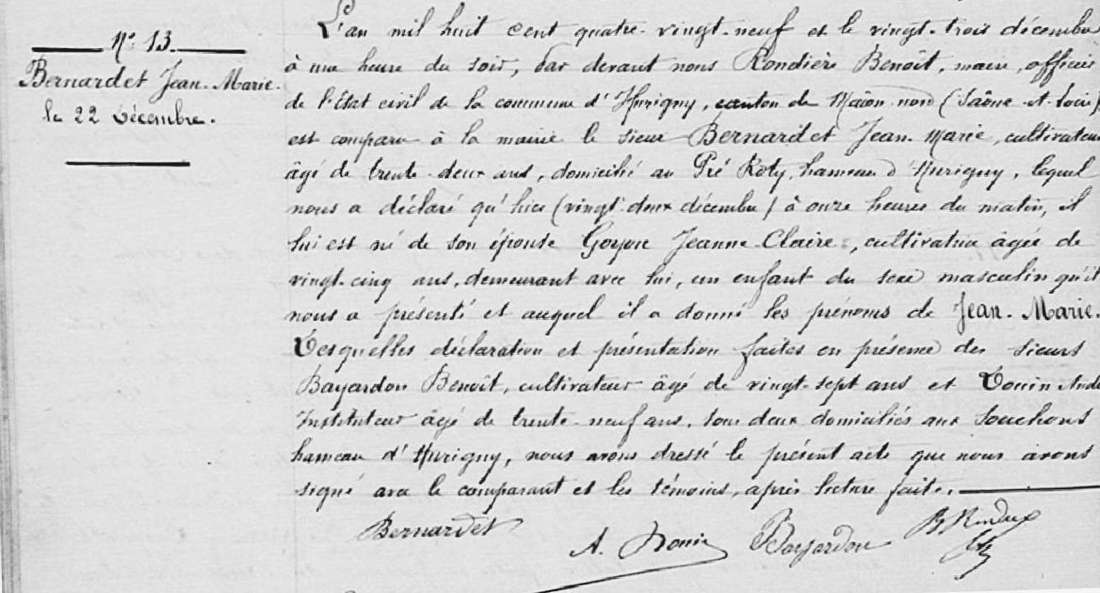 N° 13.
Bernardet Jean-Marie.
le 22 Décembre.
L'an mil huit cent quatre-vingt-neuf et le vingt-trois décembre
à une heure du soir, par devant nous Rondière Benoît, maire, officier
de l'État civil de la commune d'Hurigny, canton de Mâcon-nord (Saône-et-Loire)
est comparu à la mairie le sieur Bernardet Jean-Marie, cultivateur
âgé de trente-deux ans, domicilié au Pré Roty, hameau d'Hurigny, lequel
nous a déclaré qu'hier (vingt-deux décembre) à onze heures du matin, il
lui est né de son épouse Goyon Jeanne-Claire, cultivatrice âgée de
vingt-cinq ans, demeurant avec lui, un enfant du sexe masculin qu'il
nous a présenté et auquel il a donné les prénoms de Jean-Marie.
Lesquelles déclaration et présentation faites en présence des sieurs
Bayardon Benoît, cultivateur âgé de vingt-sept ans et
Instituteur âgé de trente-neuf ans, tous deux domiciliés aux Souchons
hameau d'Hurigny, nous avons dressé le présent acte que nous avons
signé avec le comparant et les témoins, après lecture faite.
Bernardet
A. Bayardon